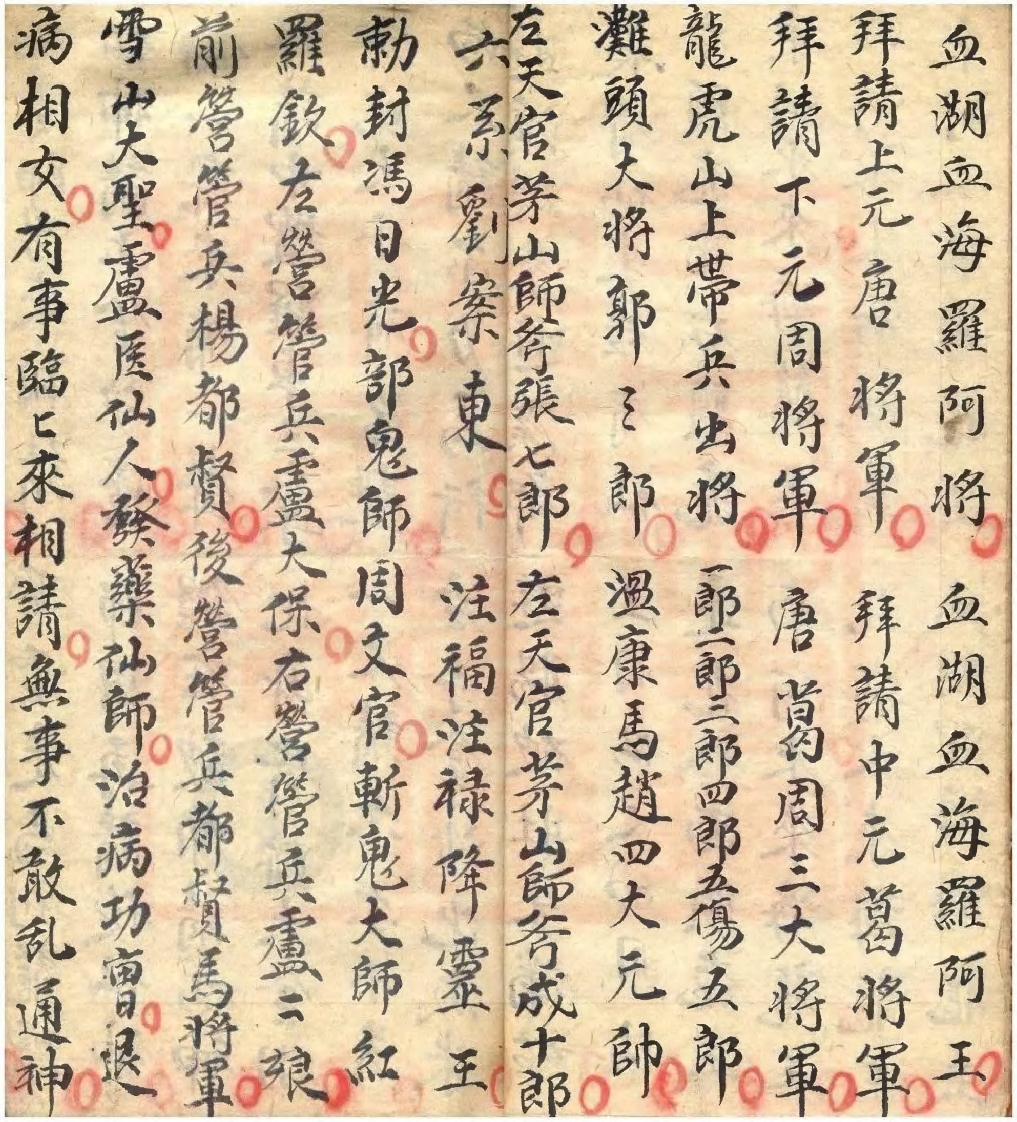 血湖血海羅阿将 血湖血海羅阿王
拜請上元唐将軍 拜請中元葛将軍
拜請下元周将軍 唐葛周三大将軍
龍虎山上帯兵出将 一郎二郎三郎四郎五傷五郎
灘頭大将郭〻郎 溫康馬趙四大元帥
左天官茅山師爷張七郎 左天官茅山師爷成十郎
六系劉案東 注福注禄降靈王
勅封馮日光部鬼師周文官斬鬼大師紅
羅欽左營管兵盧大保右營管兵盧二娘
前營管兵楊都督後營管兵都督馬将軍
雪山大聖盧医仙人發藥仙師治病功曹退
病相女有事臨匕來相請無事不敢乱通神